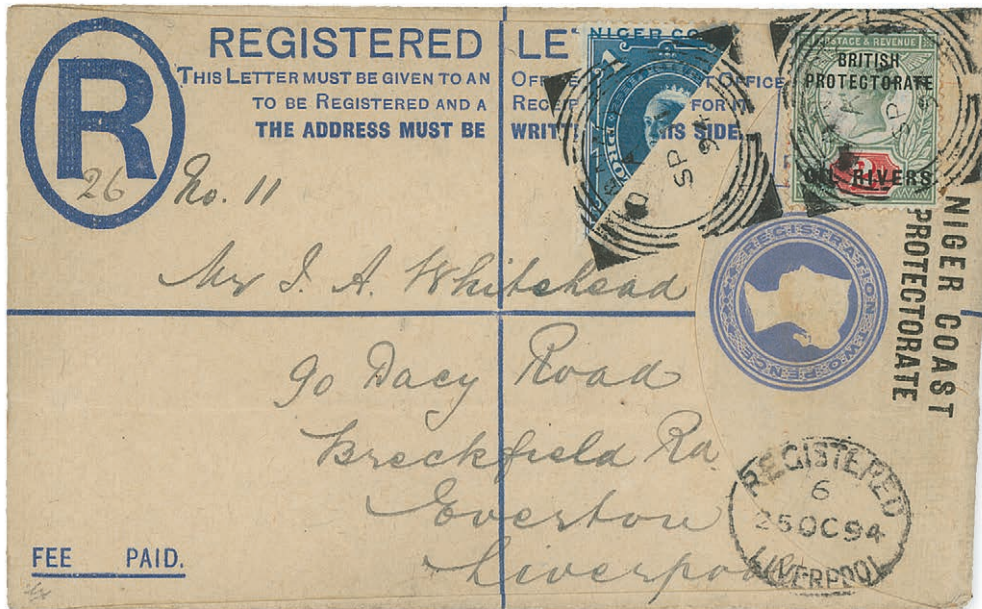 REGISTERED LE
THIS LETTER MUST BE GIVEN TO AN OFFI OFFICE
TO BE REGISTERED AND A RECEIP FOR IT
THE ADDRESS MUST BE WRITT HIS SIDE.
R
NIGER CO
SP
94
POSTAGE & REVENUE
BRITISH
PROTECTORATE
SP
OIL RIVERS.
26 No. 11
NIGER COAST
PROTECTORATE
REGISTRATION TWO PENCE
Mr J. A. Whitehead
90 Dacy Road
Breckfield Rd
Everton
Liverpool
REGISTERED
6
25 OC 94
LIVERPOOL
FEE PAID.